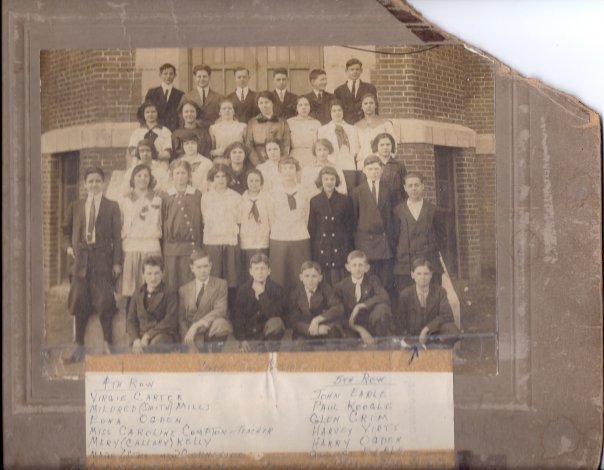 4TH ROW
VIRGIE CARTER
MILDRED (SMITH) MILLS
EDNA OGDEN
MISS CAROLINE COMPTON - TEACHER
MARY (CALLAHY) KELLY
5TH ROW
JOHN EARLE
PAUL KOOGLE
GLEN CRIM
HARVEY VIRTS
HARRY OGDEN